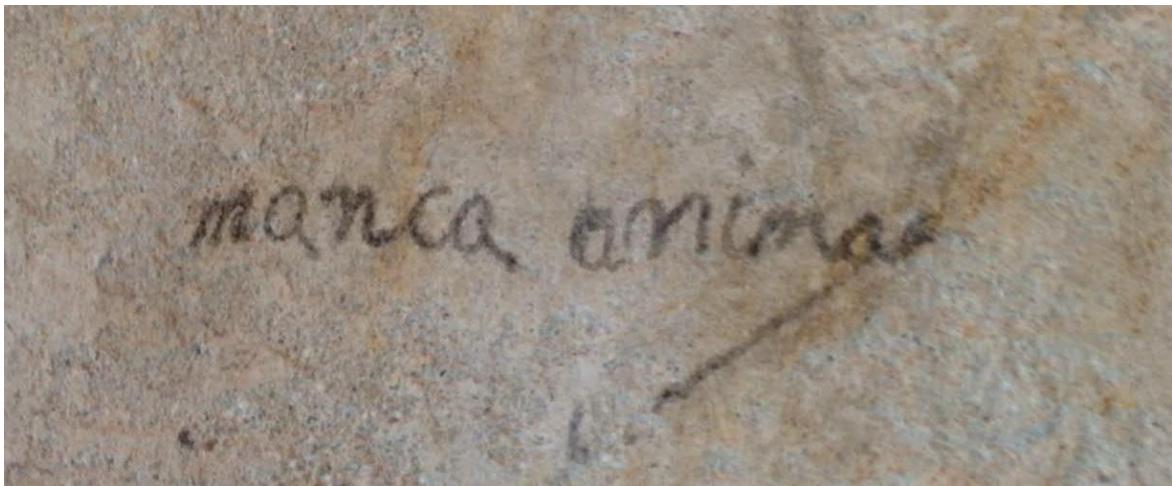 manca animas